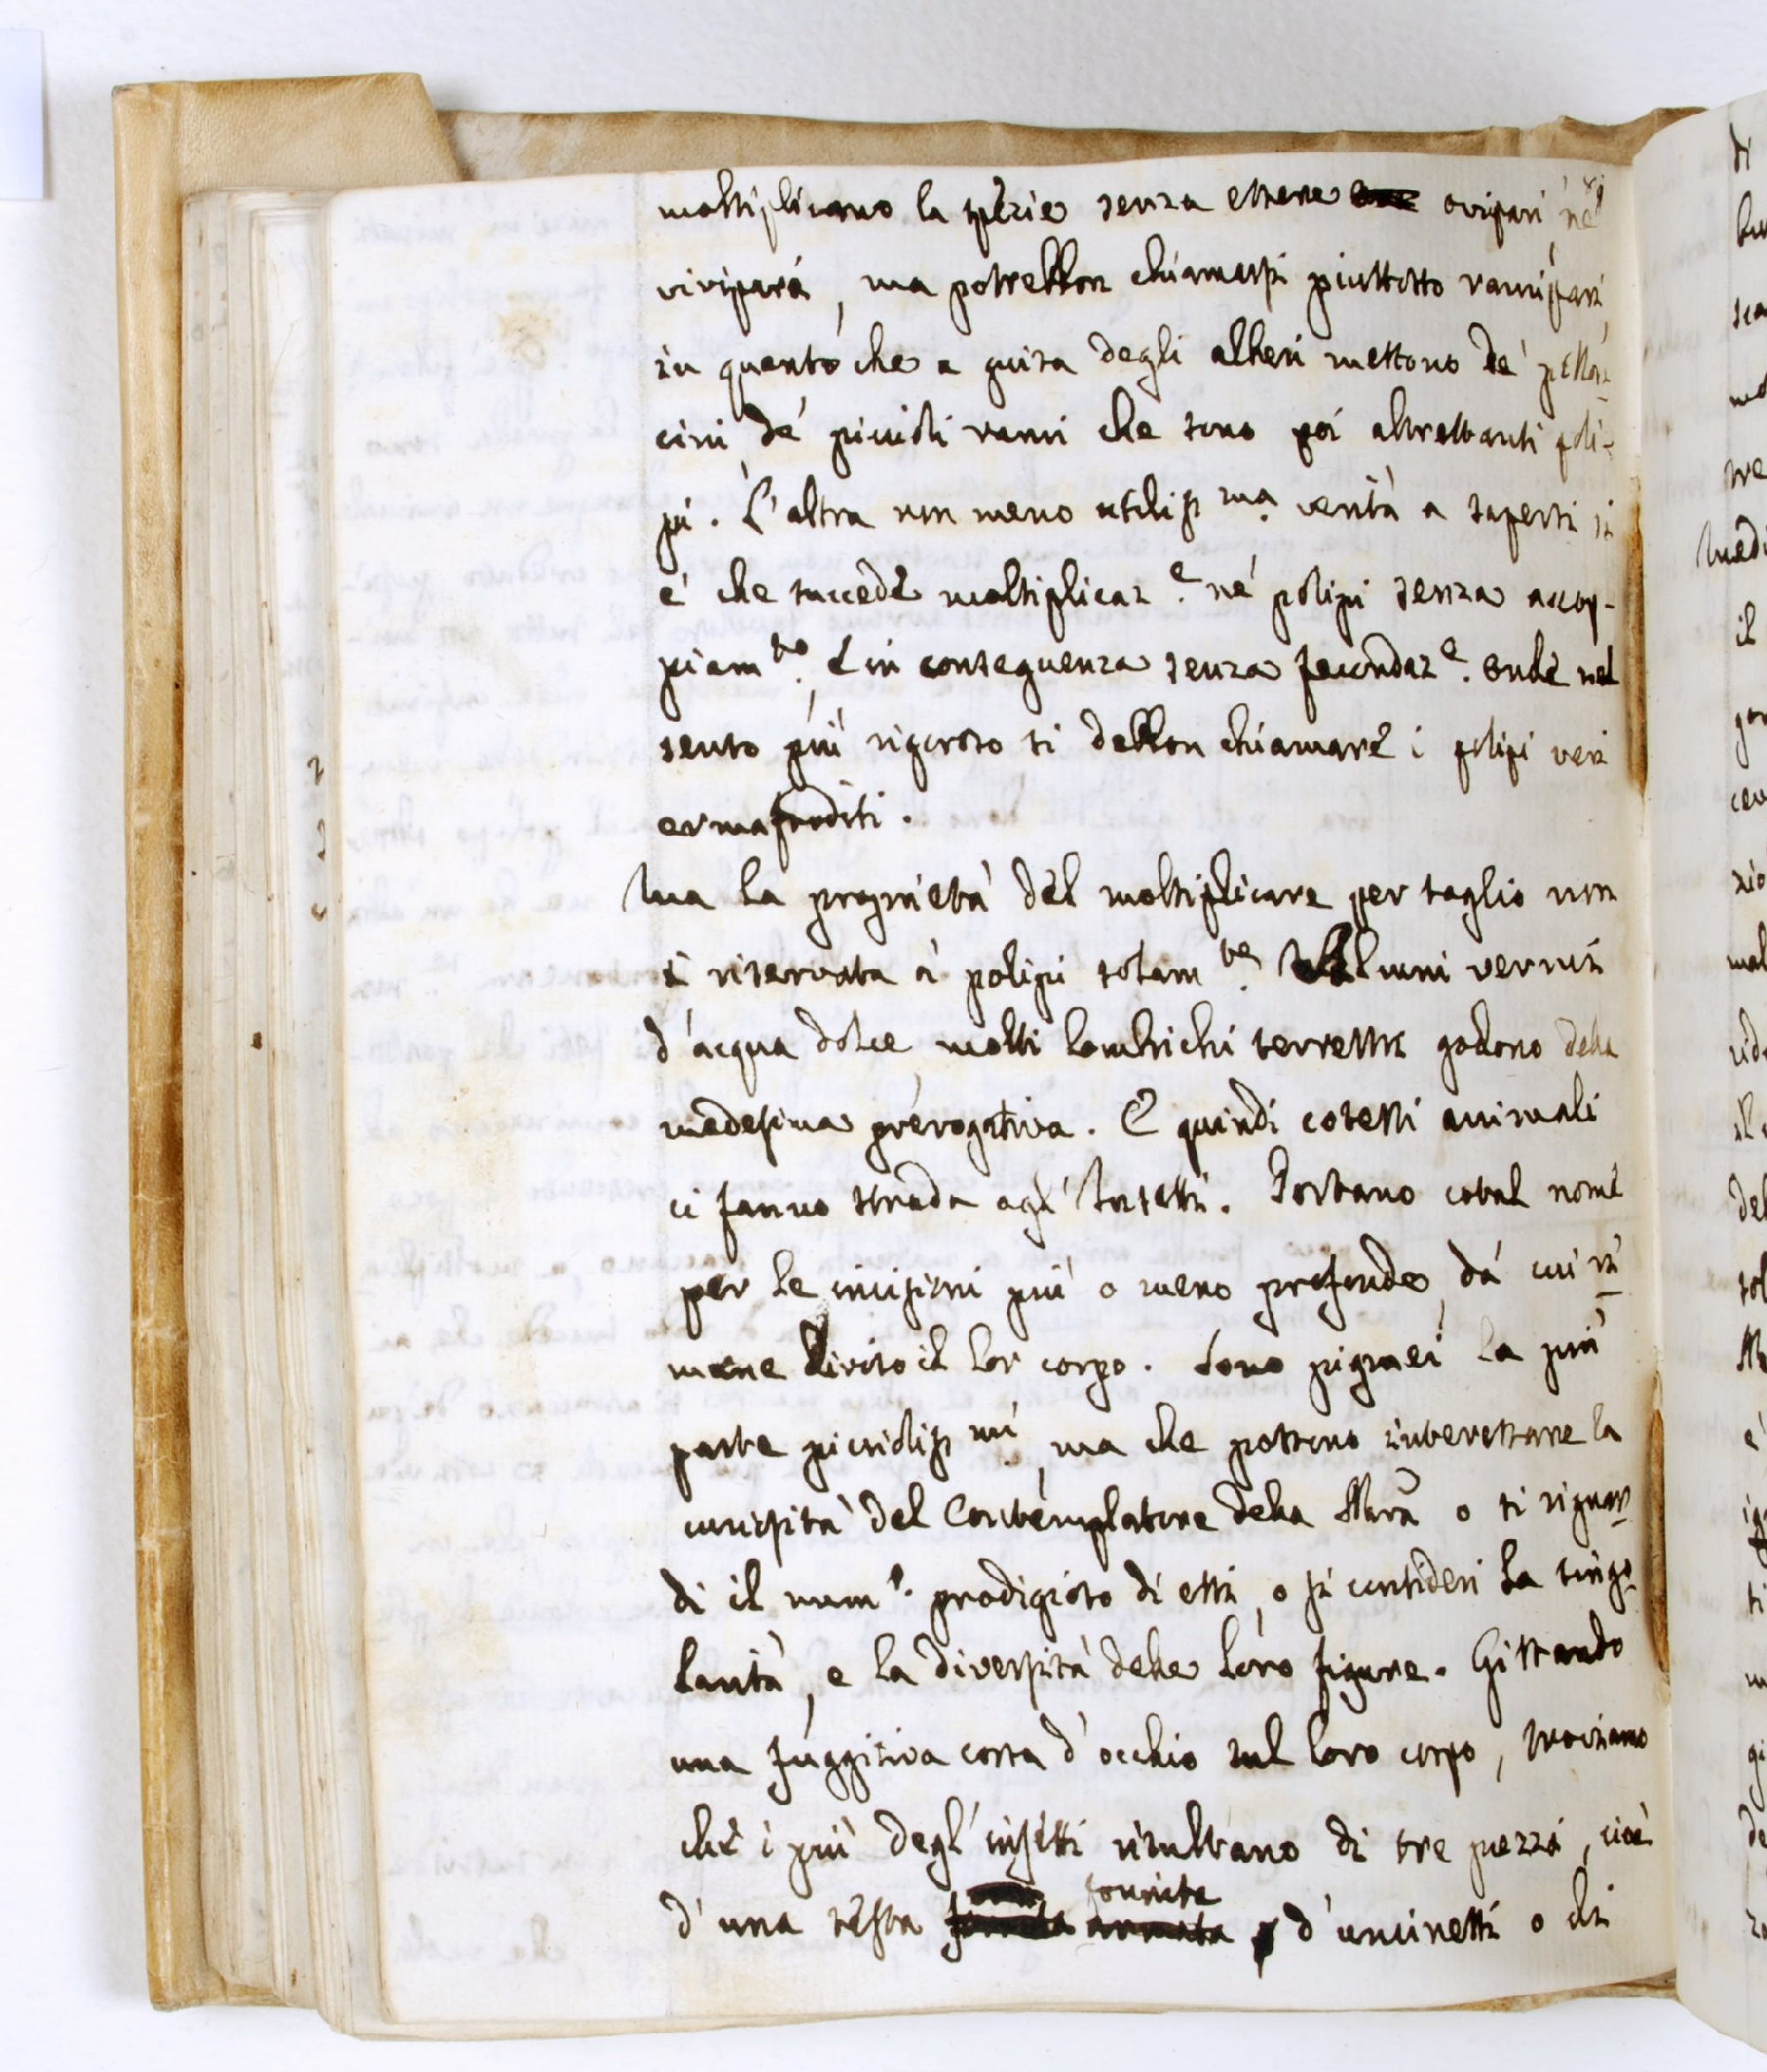 moltiplicano la spezie senza essere ovipari, nè
vivipari, ma potrebbon chiamarsi piuttosto ramipari,
in quanto che a guisa degli alberi mettono de'
cini, de' piccioli rami che sono poi altrettanti poli-
pi. L'altra non meno utiliss.ma verità a sapersi si
è che succede moltiplicaz.e ne' polipi senza accop-
piam.to, e in conseguenza senza fecondaz.e. onde nel
senso più rigoroso si debbon chiamare i polipi veri
ermafroditi.
Ma la proprietà del moltiplicare per taglio non
è riservata a' polipi solam.te. Alcuni vermi
d'acqua dolce, molti lombrichi terrestri godono della
medesima prerogativa. E quindi cotesti animali
ci fanno strada agl'Insetti. Portano cotal nome
per le incisioni più o meno profonde, da cui ri-
mane diviso il lor corpo. Sono pigmei la più
parte piccioliss.mi, ma che possono interessare la
curiosità del Contemplatore della Nra o si riguar-
di il num.o prodigioso di essi, o si consideri la singo-
larità, e la diversità delle loro figure. Gittando
una fuggitiva corsa d'occhio sul loro corpo, troviamo
che i più degl'insetti risultano di tre pezzi, cioè
fornita
d'una testa armata d'uncinetti o di
di
il
del